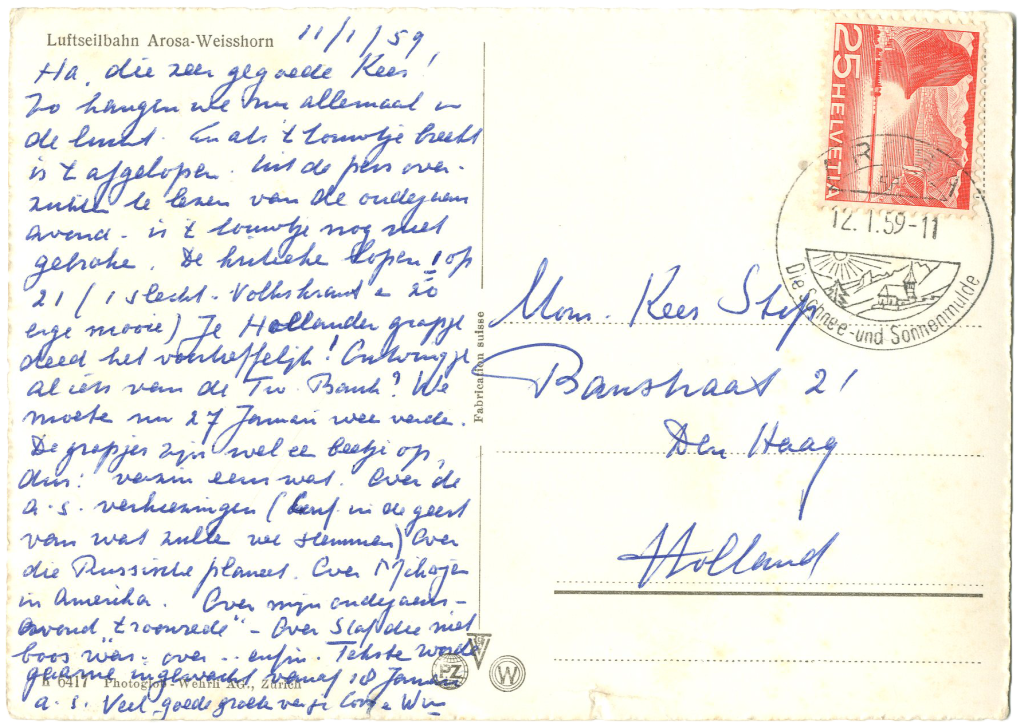 Luftseilbahn Arosa-Weisshorn 11/1/59
Ha, die zeer gegoede Kees!
Zo hangen we nu allemaal in
de lucht. En als 't touwtje breekt
is 't afgelopen. Uit de pers over-
te lezen van de oudejaars
avond - is 't touwtje nog niet
gebroke. De kritieke lopen! op
21 / 1 slecht - Volkskrant - 20
erge mooie) Je Hollander grapje
deed het voortreffelijk! Ontving je
al iets van de Tw. Bank? We
moete nu 27 Januari wee verde.
De grapjes zijn wel een beetje op,
dus: verzin eens wat. Over de
a.s. verkiezingen ( in de geest
van wat zulle we stemmen) Over
die Russische planeet. Over Mikojan
in Amerika. Over mijn oudejaars-
avond "troonrede" - Over Slaf die niet
boos was - over .. enfin. Tekste worde
gaarne ingewacht vanaf 18 Januari
a.s. Veel goede groete van je Corry e Wim
K 6417 Photoglob-Wehrli AG., Zürich
Fabrication suisse
PZ
W
25 HELVETIA
12. 1. 59-11
Die Schnee- und Sonnenmulde
Mons. Kees Stip
Banstraat 21
Den Haag
Holland